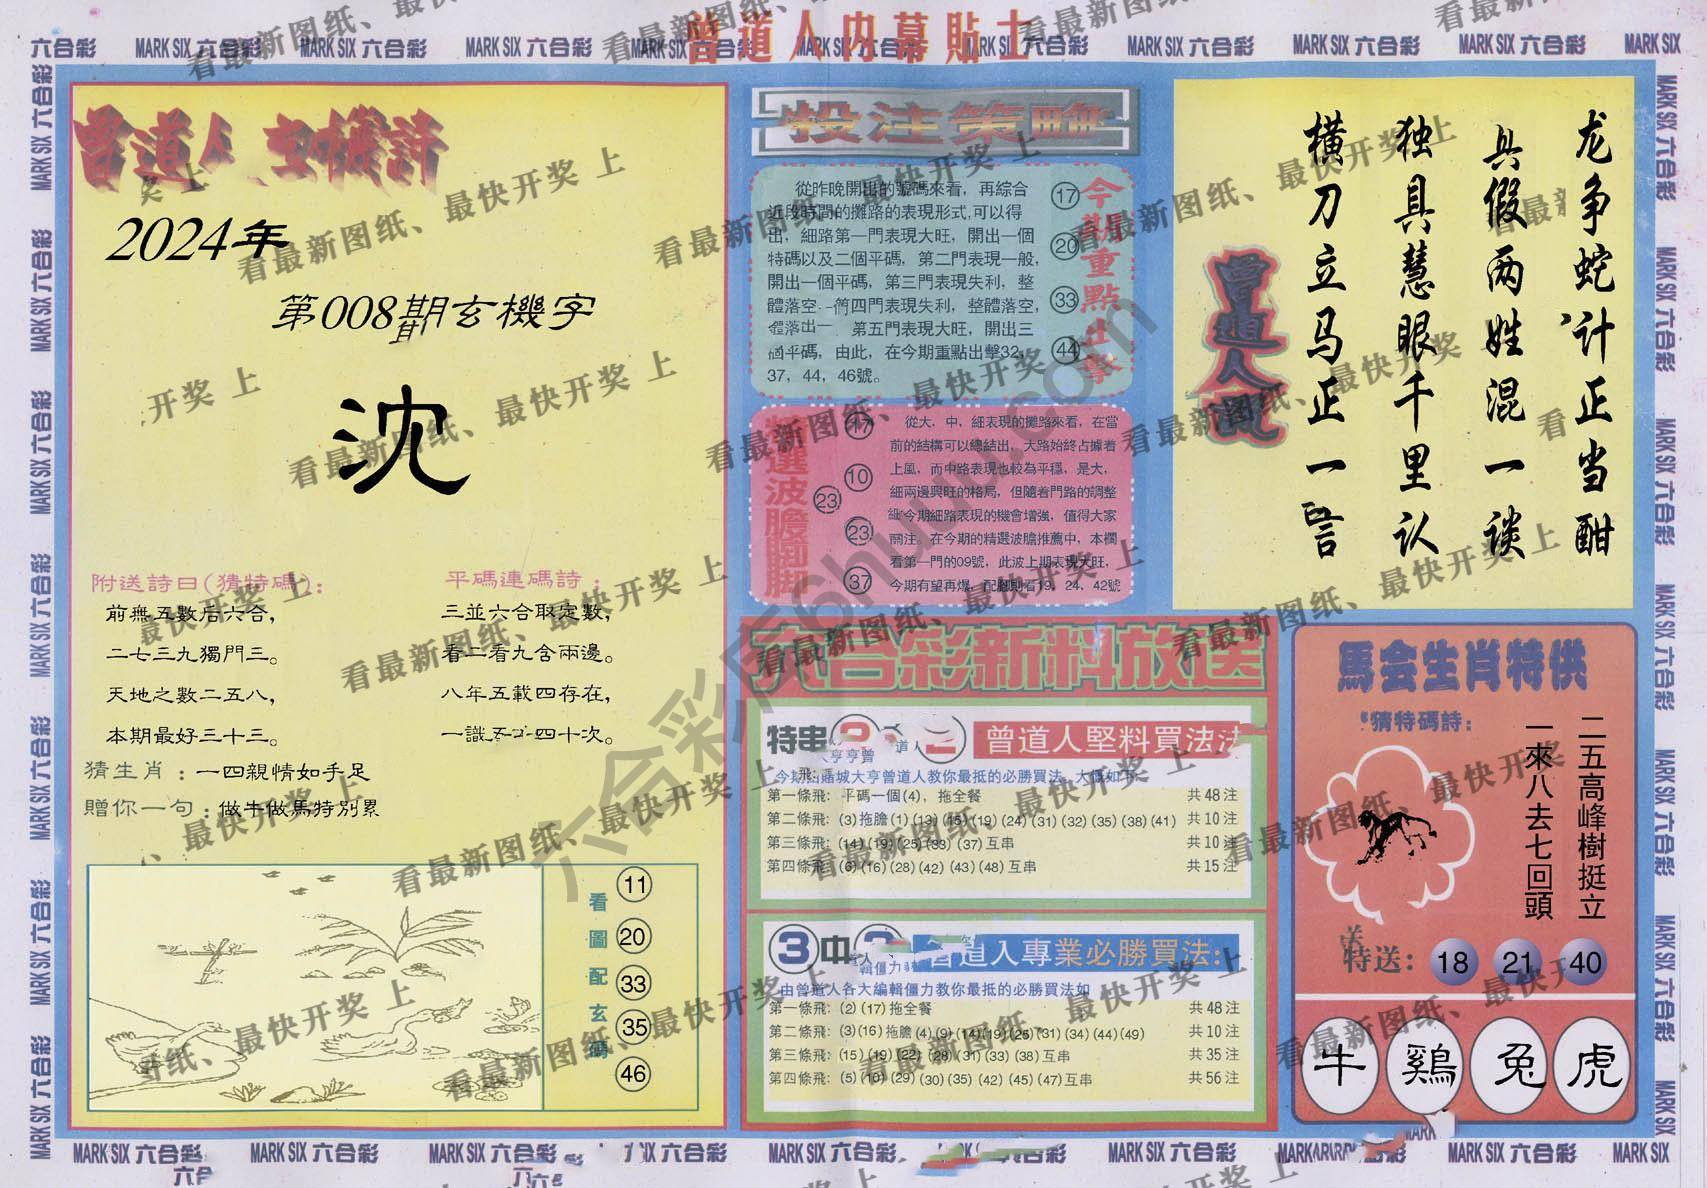 曾道人内幕貼士
MARK SIX 六合彩
曾道人 玄機詩
2024年
第008期玄機字
沈
附送詩曰(猜特碼):
前無五數后六合,
二七三九獨門三。
天地之數二五八,
本期最好三十三。
平碼連碼詩:
三並六合取定數,
看二看九含兩邊。
八年五載四存在,
一識五 四十次。
猜生肖:一四親情如手足
贈你一句:做牛做馬特別累
看圖配玄碼
11
20
33
35
46
投注策略
從昨晚開出的號碼來看，再綜合
近段時間的攤路的表現形式,可以得
出，細路第一門表現大旺，開出一個
特碼以及二個平碼，第二門表現一般,
開出一個平碼，第三門表現失利，整
體落空 四門表現失利，整體落空,
體落出 第五門表現大旺，開出三
平碼，由此，在今期重點出擊32,
37，44，46號。
今期重點出擊
17
20
33
44
選波膽腳
17
10
23
23
37
從大，中，細表現的攤路來看，在當
前的結構可以總結出，大路始終占據着
上風，而中路表現也較為平穩，是大,
細兩邊興旺的格局，但隨着門路的調整
今期細路表現的機會增強，值得大家
關注。在今期的精選波膽推薦中，本欄
看第一門的09號，此波上期表現大旺,
今期有望再爆，配腳則看19，24，42號
六合彩新料放送
特串 曾道人堅料買法
第一條飛：平碼一個(4)，拖全餐 共48注
第二條飛：(3)拖膽(1)(13)(15)(19)(24)(31)(32)(35)(38)(41) 共10注
第三條飛：(14)(19)(25)(33)(37)互串 共10注
第四條飛：(6)(16)(28)(42)(43)(48)互串 共15注
3中 曾道人專業必勝買法:
由曾道人各大編輯僵力教你最抵的必勝買法如
第一條飛：(2)(17)拖全餐 共48注
第二條飛：(3)(16)拖膽(4)(9)(14)(19)(25)(31)(34)(44)(49) 共10注
第三條飛：(15)(19)(22)(28)(31)(33)(38)互串 共35注
第四條飛：(5)(10)(29)(30)(35)(42)(45)(47)互串 共56注
龙争蛇计正当酣
真假两姓混一谈
独具慧眼千里认
横刀立马正一言
曾道人
馬会生肖特供
猜特碼詩:
二五高峰樹挺立
一來八去七回頭
特送: 18 21 40
牛 鷄 兔 虎
看最新图纸、最快开奖 上
六合彩库6huuu.com